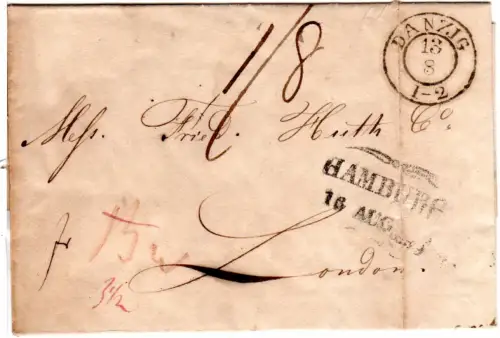 DANZIG
13
8
1-2
1/8
Mess. Fried. Huth Co.
HAMBURG
16 AUG
London.
3 1/2